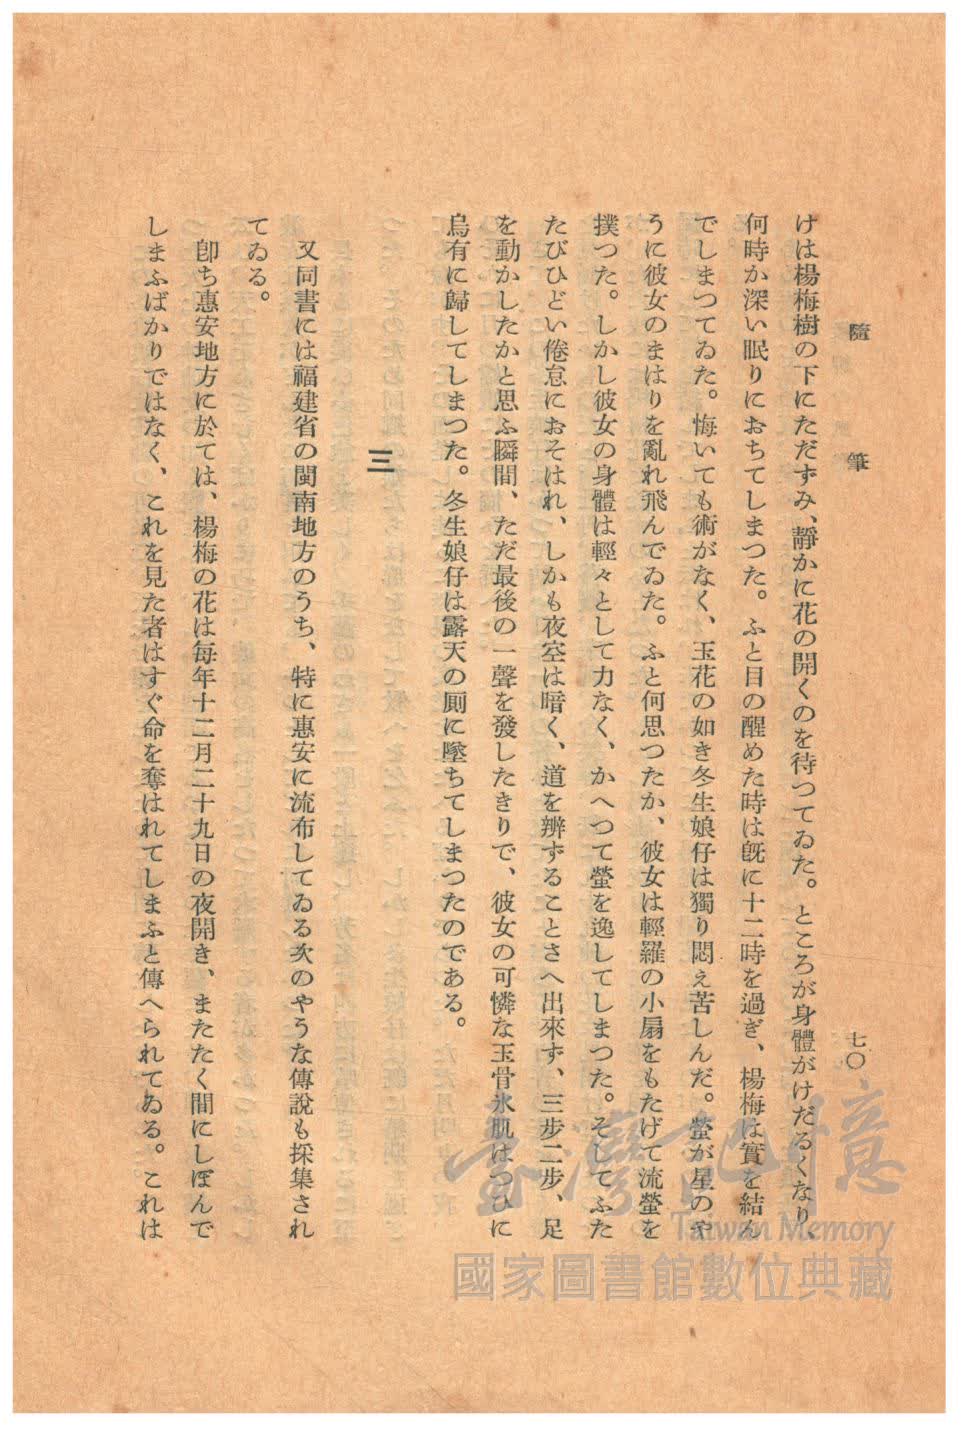 隨筆
七〇
けは楊梅樹の下にただずみ、靜かに花の開くのを待つてゐた。ところが身體がけだるくなり、
何時か深い眠りにおちてしまつた。ふと目の醒めた時は既に十二時を過ぎ、楊梅は實を結ん
でしまつてゐた。悔いても術がなく、玉花の如き冬生娘仔は獨り悶え苦しんだ。螢が星のや
うに彼女のまはりを亂れ飛んでゐた。ふと何思つたか、彼女は輕羅の小扇をもたげて流螢を
撲つた。しかし彼女の身體は輕々として力なく、かへつて螢を逸してしまつた。そしてふた
たびひどい倦怠におそはれ、しかも夜空は暗く、道を辨ずることさへ出來ず、三步二步、足
を動かしたかと思ふ瞬間、ただ最後の一聲を發したきりで、彼女の可憐な玉骨氷肌はつひに
烏有に歸してしまつた。冬生娘仔は露天の厠に墜ちてしまつたのである。
三
又同書には福建省の閩南地方のうち、特に惠安に流布してゐる次のやうな傳說も採集され
てゐる。
卽ち惠安地方に於ては、楊梅の花は每年十二月二十九日の夜開き、またたく間にしぼんで
しまふばかりではなく、これを見た者はすぐ命を奪はれてしまふと傳へられてゐる。これは
臺灣記憶
Taiwan Memory
國家圖書館數位典藏